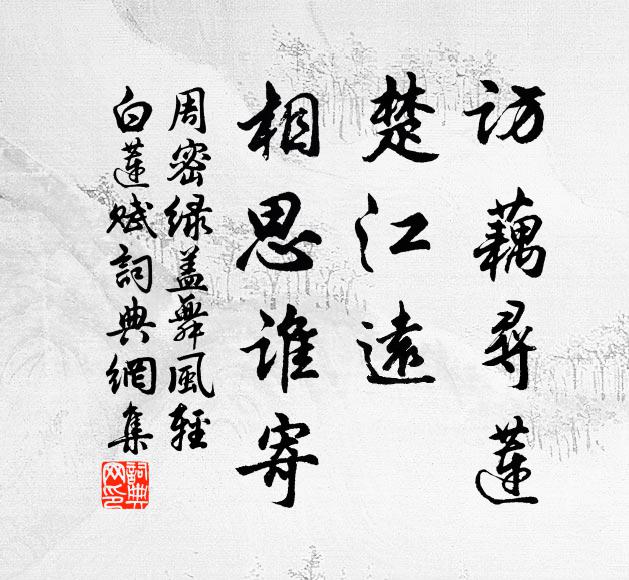 访藕寻莲
楚江远
相思谁寄
周密绿盖舞风轻
白莲赋词典網集
詞典网印